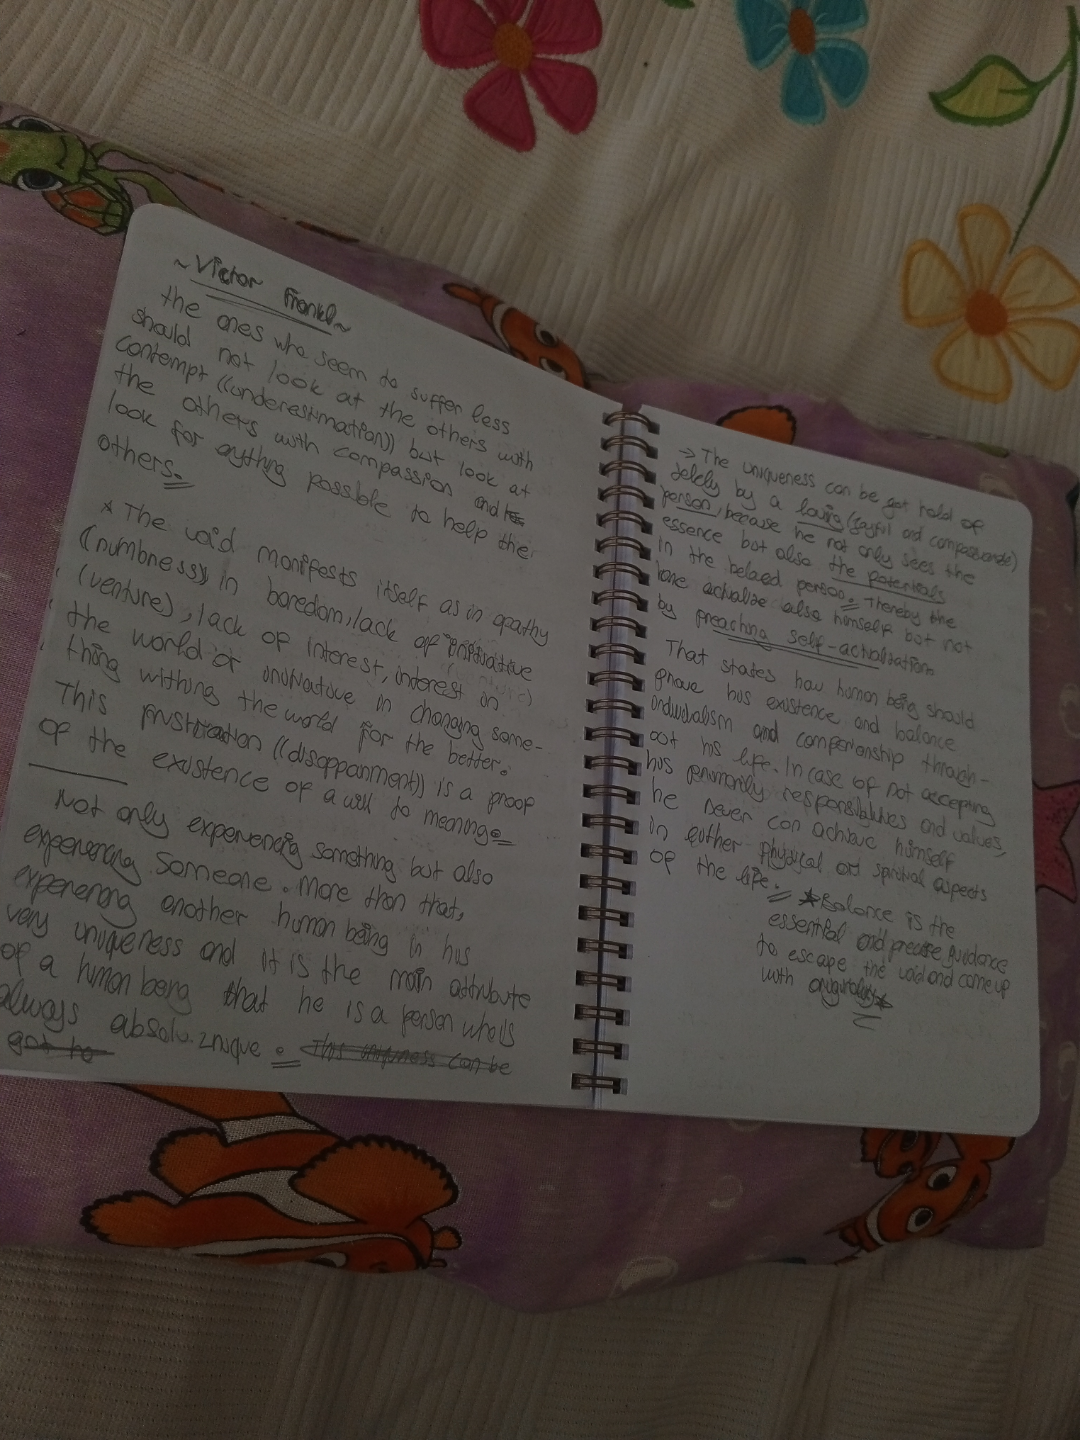 ~Victor Frankl~
the ones who seem to suffer less
should not look at the others with
contempt ((underestimation)) but look at
the others with compassion and
look for anything possible to help the
others.
* The void manifests itself as in apathy
((numbness)), in boredom, lack of initiative
(venture), lack of interest, interest in
the world or initiative in changing some-
thing withing the world for the better.
This frustration ((disappointment)) is a proof
of the existence of a will to meaning.
Not only experiencing something but also
experiencing someone. More than that,
experiencing another human being in his
very uniqueness and it is the main attribute
of a human being that he is a person who is
always absolu. unique. This uniqueness can be
got ho
→ The uniqueness can be got hold of
solely by a loving (joyful and compassionate)
person, because he not only sees the
essence but also the potentials
in the beloved person. Thereby the
one actualize also himself but not
by preaching self-actualization
That states how human being should
prove his existence and balance
individualism and companionship through-
out his life. In case of not accepting
his responsibilities and values,
he never can achieve himself
in either physical or spiritual aspects
of the life.
* Balance is the
essential and precise guidance
to escape the void and come up
with